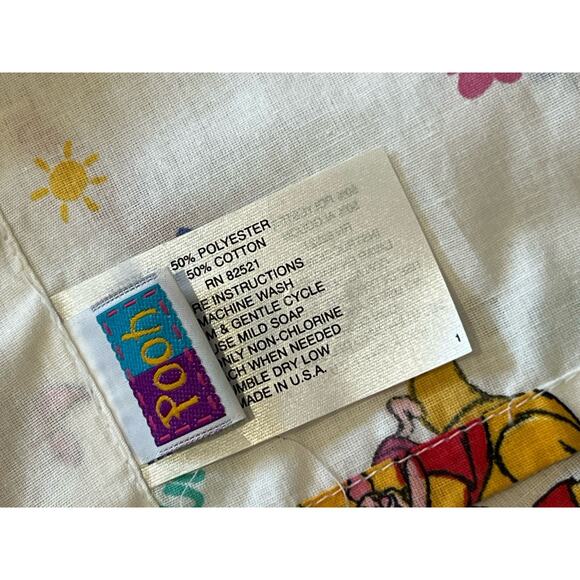 50% POLYESTER
50% COTTON
RN 82521
RE INSTRUCTIONS
MACHINE WASH
M & GENTLE CYCLE
USE MILD SOAP
ONLY NON-CHLORINE
CH WHEN NEEDED
MBLE DRY LOW
MADE IN U.S.A.
1
Pooh